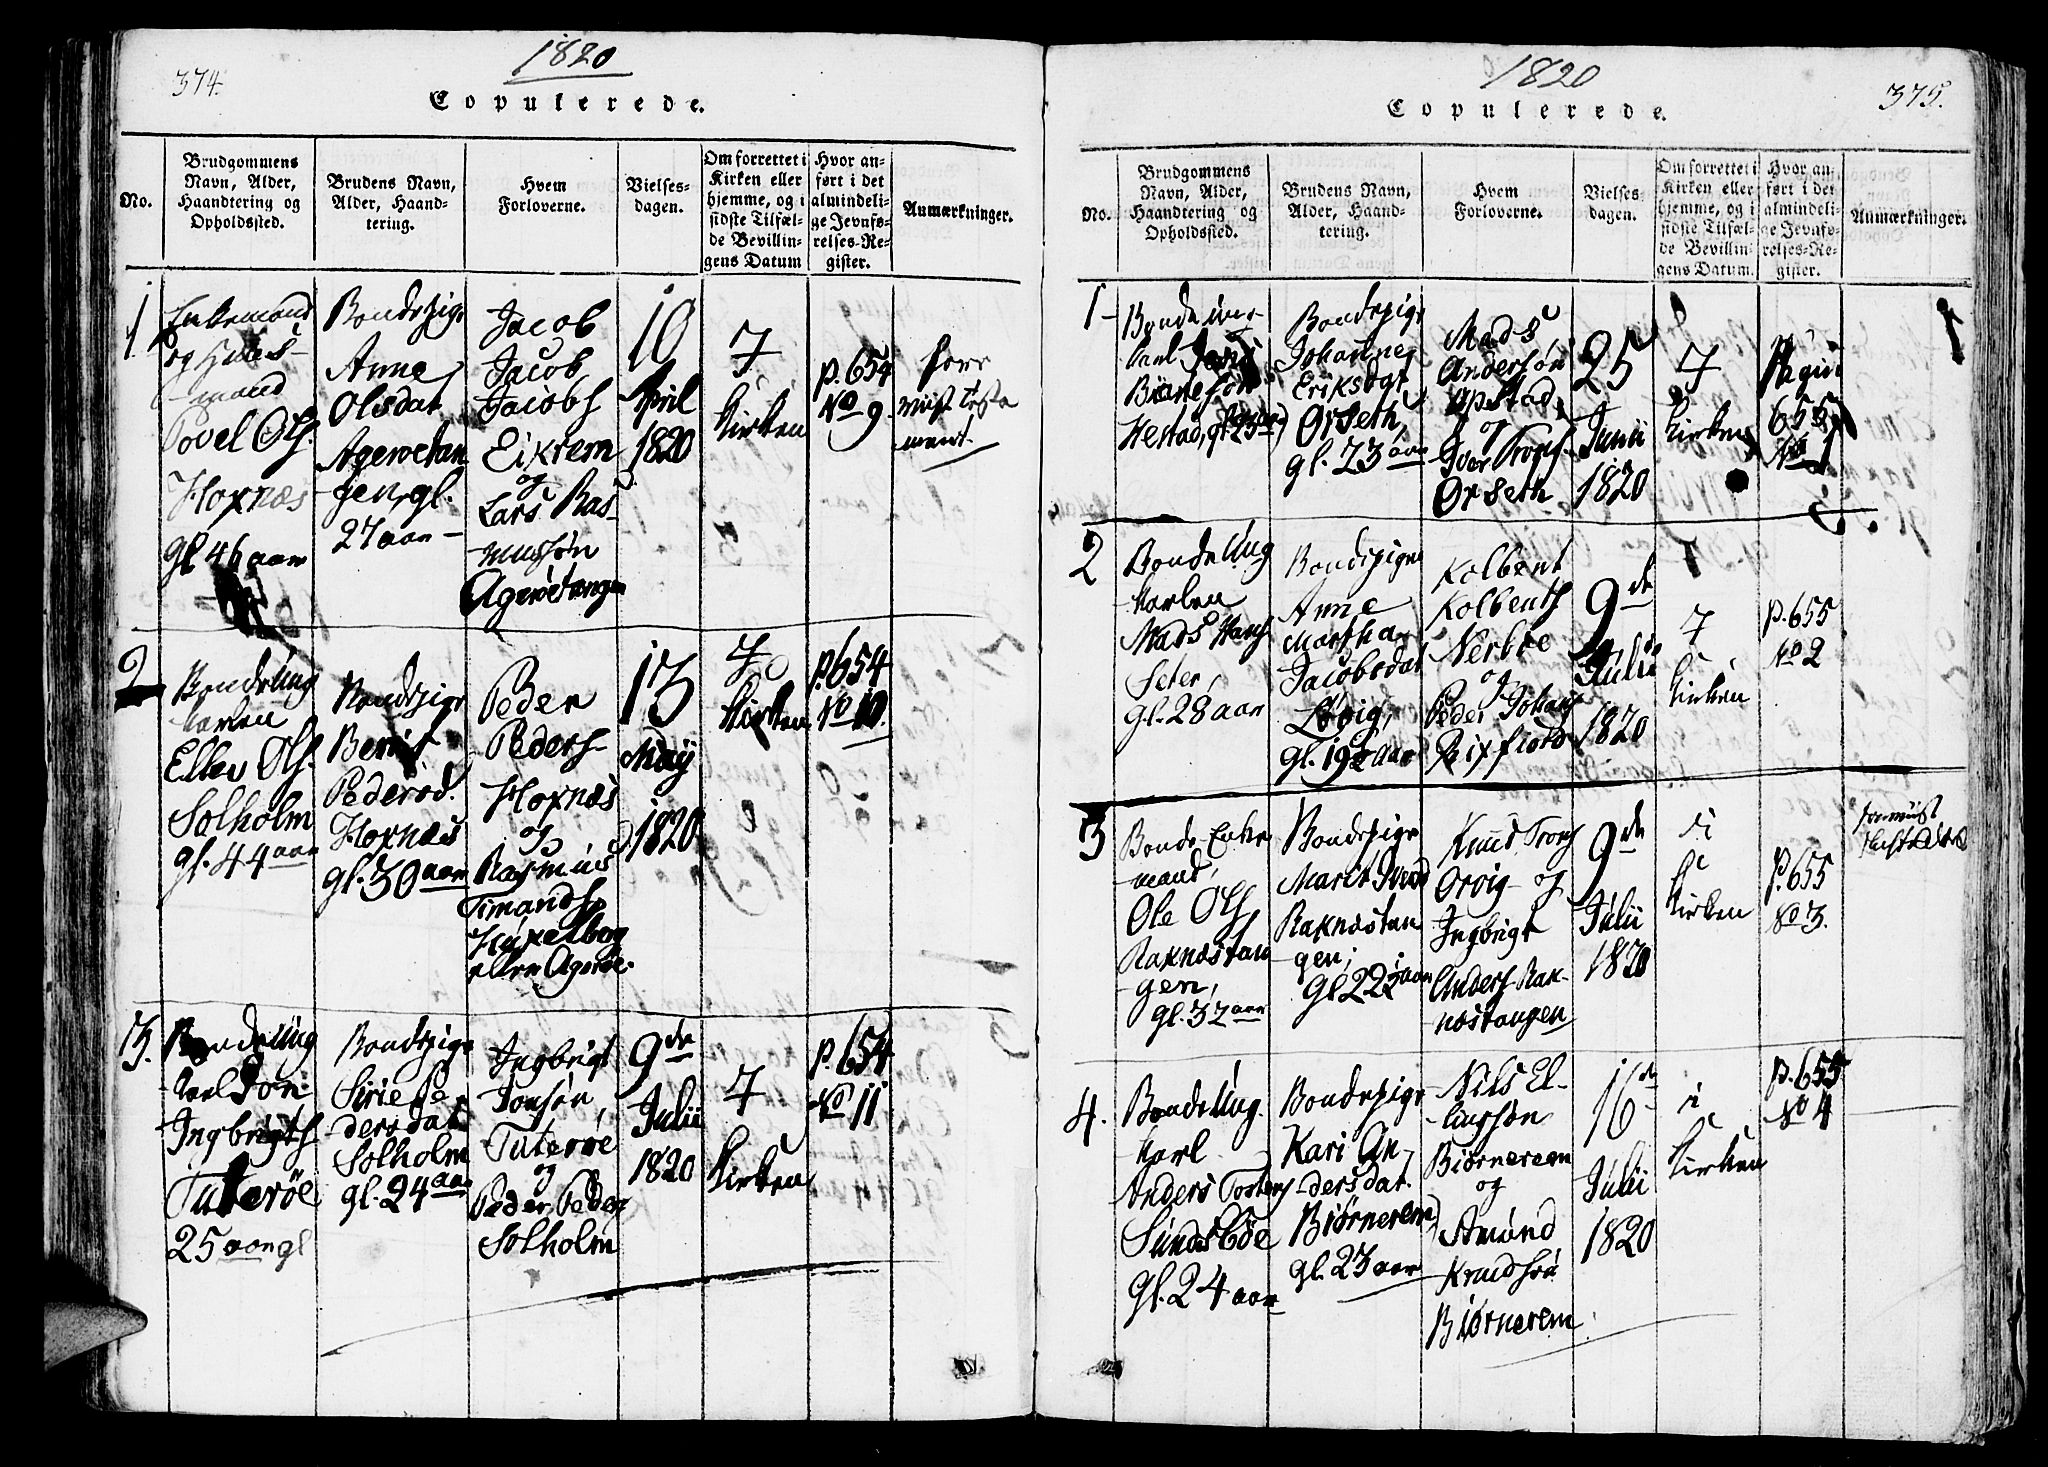 374.
1820
Copulerede.
No.
Brudgommens
Navn, Alder,
Haandtering og
Opholdssted.
Brudens Navn,
Alder, Haand-
tering.
Hvem
Forloverne.
Vielses-
dagen.
Om forrettet i
Kirken eller
hjemme, og i
sidste Tilfæl-
de Bevillin-
gens Datum
Hvor an-
ført i det
almindeli-
ge Jevnfø-
relses-Re-
gister.
Anmærkninger.
1.
Enkemand
og Huus-
mand
Povel Ols.
Hoxnæs
gl. 46 aar
Bondepige
Anne
Olsdat
Agerøetan
gen, gl.
27 aar
Jacob
Jacob
Jacobs
Eikrem
og
Lars Ras-
mussøn
Agerøetangen
10
April
1820
i
Kirken
p. 654
No 9.
2
Bonde Ung
karlen
Ellev Ols.
Solholm
gl. 44 aar
Bondepige
Berit
Pedersd.
Hoxnæs
gl. 30 aar
Peder
Peders-
Hoxnæs
og
Rasmus
Timands
eller Agerøe.
13
Maij
1820
i
Kirken
p. 654
No 10.
3.
Bonde Ung
karl Jon
Ingbrigts
Tuterøe
25 aar gl
Bondepige
Sirie Pe
dersdat
Solholm
gl. 24 aar
Ingbrigt
Jonsøn
Tuterøe
og
Peder Peders
Solholm
9de
Julii
1820
i
Kirken
p. 654
No 11
1820
Copulerede.
375.
No.
Brudgommens
Navn, Alder,
Haandtering og
Opholdssted.
Brudens Navn,
Alder, Haand-
tering.
Hvem
Forloverne.
Vielses-
dagen.
Om forrettet i
Kirken eller
hjemme, og i
sidste Tilfæl-
de Bevillin-
gens Datum.
Hvor an-
ført i det
almindeli-
ge Jevnfø-
relses-Re-
gister.
Anmærkninger.
1
Bonde Ung
karl Jens
Hestad, gl. 25
Bondepige
Johanne
Eriksdat
Orseth,
gl. 23 aar
Mads
Andersøn
Opstad
og
Iver
Orseth
25
Junii
1820
i
Kirken
Pagina
655
No 1
2
Bonde Ung
karlen
Mads Hans
Seter,
gl. 28 aar
Bondepige
Anne
Martha
Jacobsdat
Løvig,
gl. 19½ aar
Kolbent
Kolbents
Nerbøe
og
Peder Johans
Rixfiord
9de
Julii
1820
i
Kirken
p. 655
No 2
3
Bonde Enke
mand,
Ole Ols,
Raknæstan
gen,
gl. 32 aar
Bondepige
Marit
Raknæstan
gen,
gl 22½ aar
Knud
Orvig og
Ingbrigt
Anders Rak-
næstangen
9de
Julii
1820
i
Kirken
p. 655
No 3.
4.
Bonde Ung
karl
Anders Tostens
Sundsbøe
gl. 24 aar
Bondepige
Kari An
dersdat.
Biørnerem
gl. 23 aar
Nils El-
lingsøn
Biørnerem
og
Amund
Knudsøn
Biørnerem
16de
Julii
1820
i
Kirken
p. 655
No 4